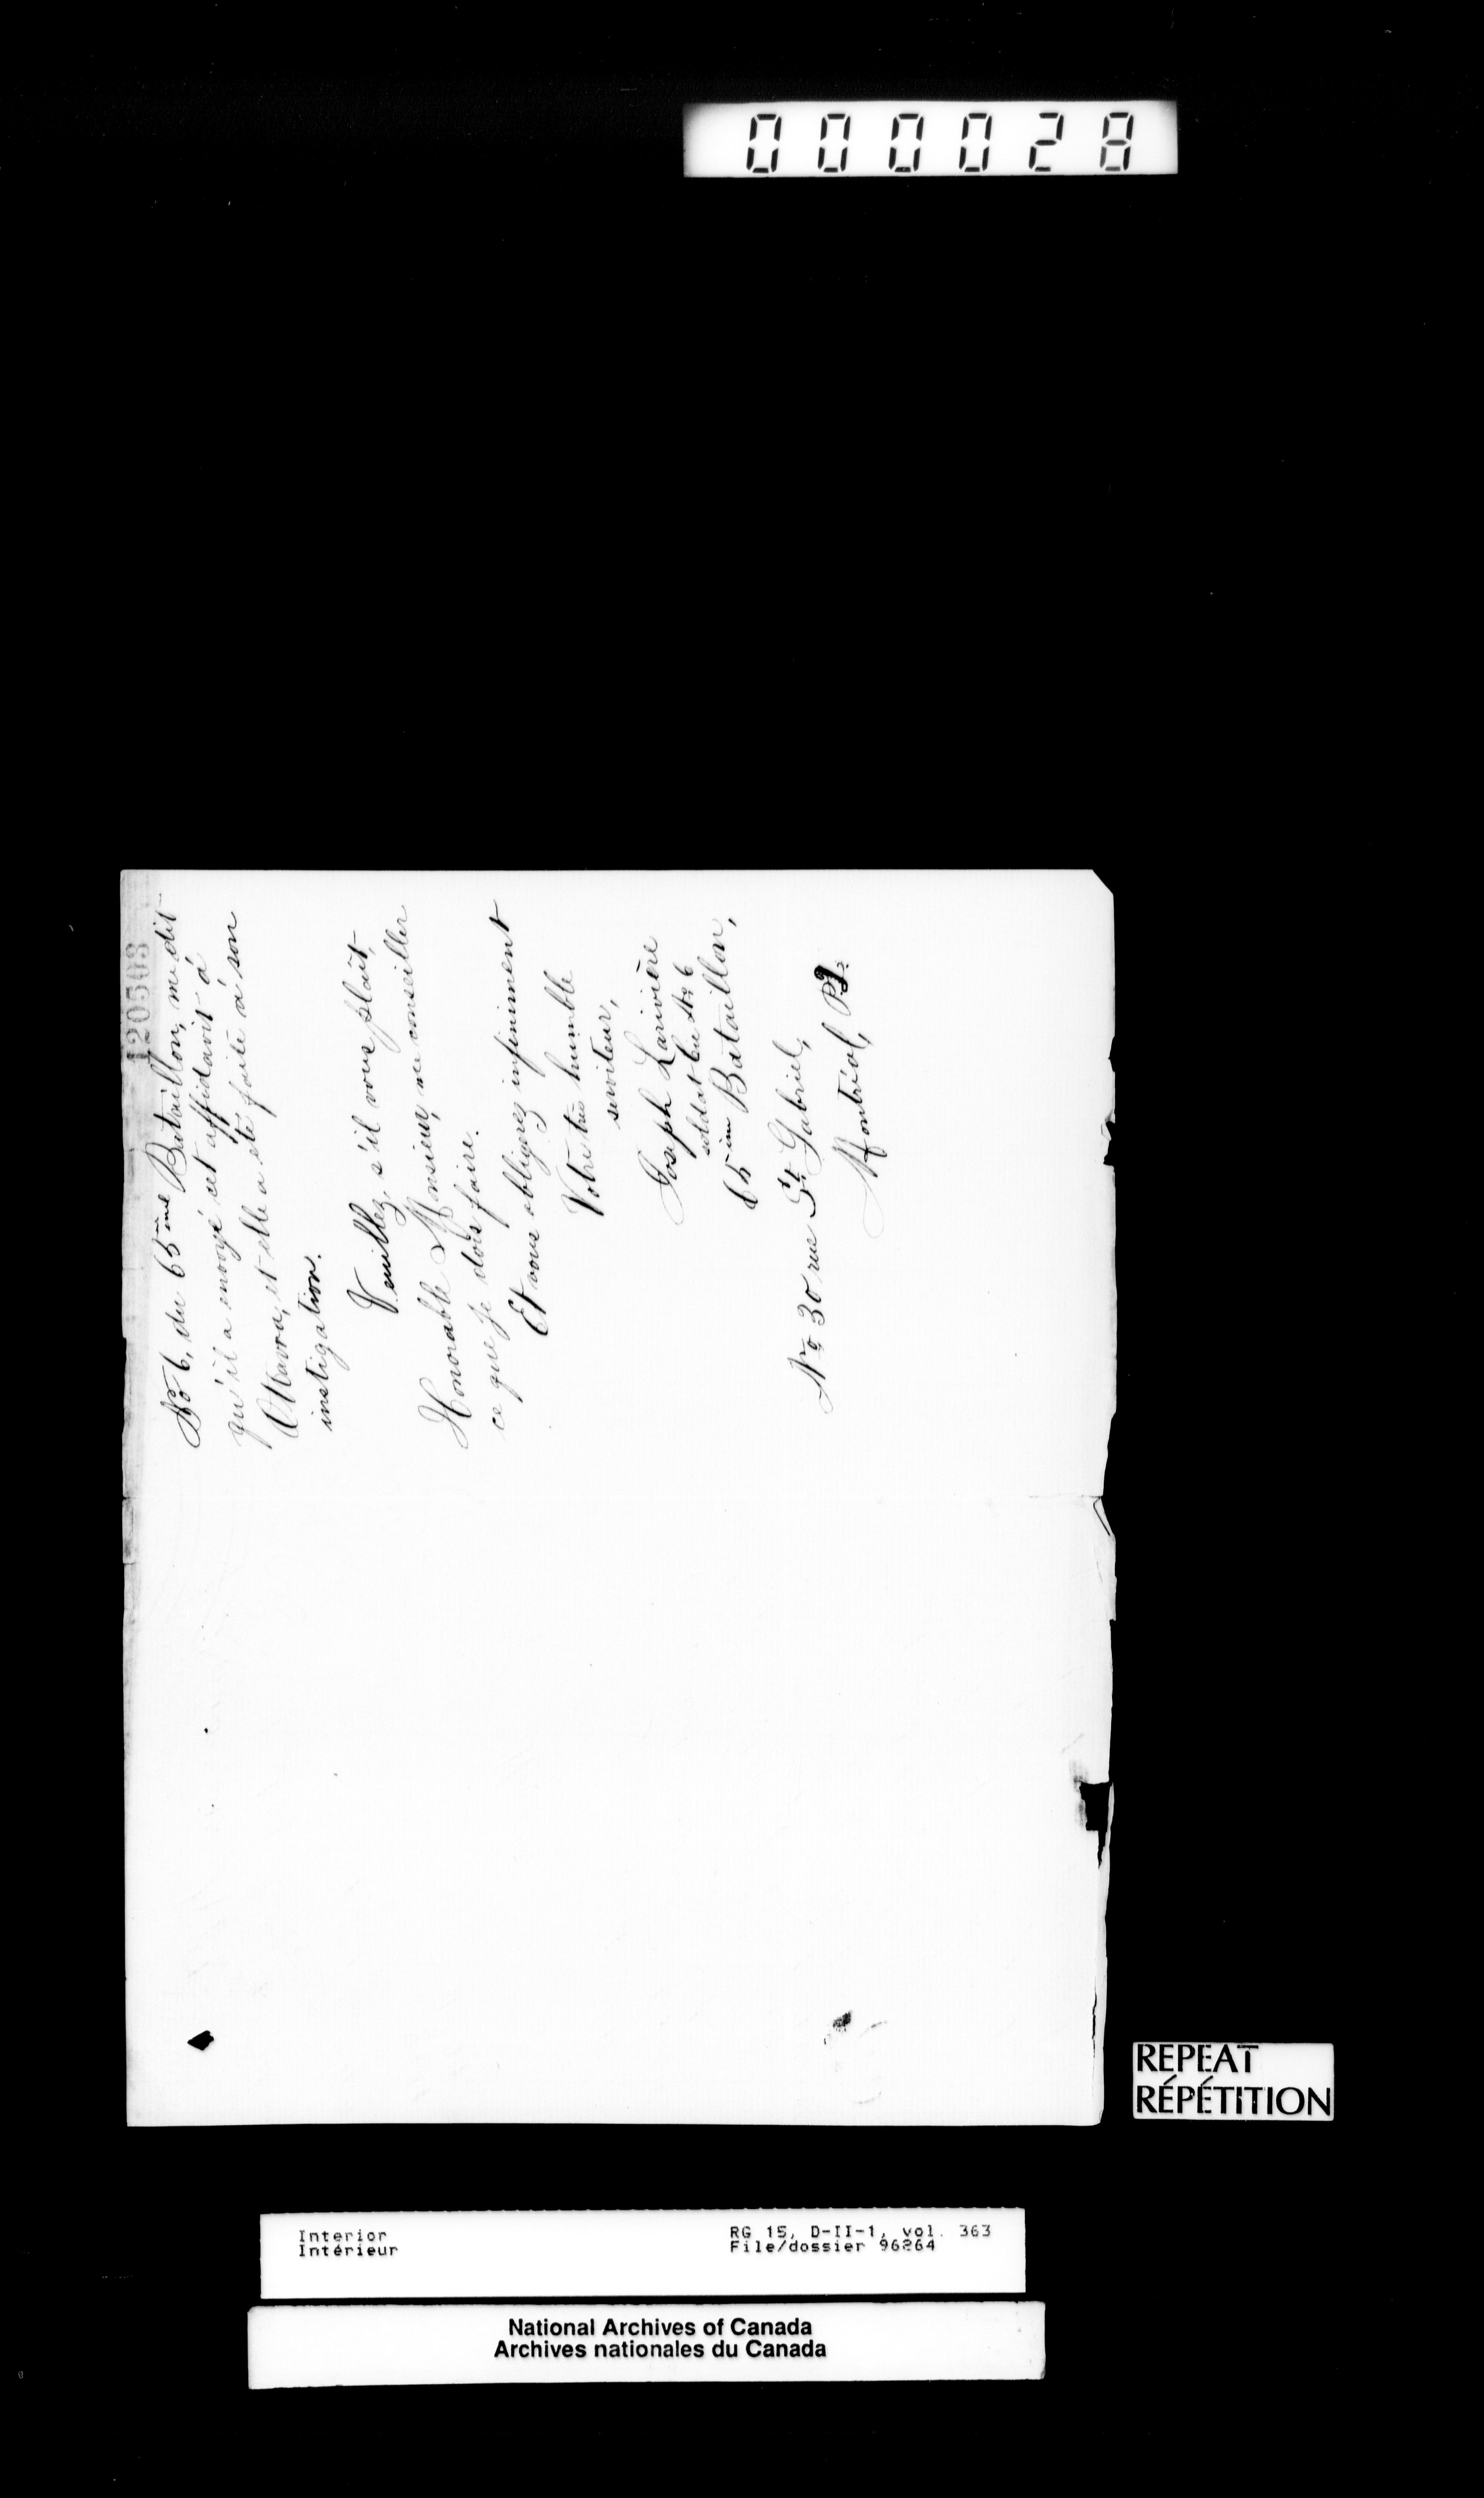 000028
120503
No 6, du 65ème Bataillon, me dit
qu'il a envoyé cet affidavit à
Ottawa, et elle a été faite à son
instigation.
Veuillez, s'il vous plaît,
Honorable Monsieur, me conseiller
ce que je dois faire.
Et vous obligerez infiniment
Votre très humble
serviteur,
Joseph Larivière
soldat Cie No 6
65ème Bataillon,
No 30 rue St. Gabriel,
Montréal, P.Q.
REPEAT
RÉPÉTITION
Interior RG 15, D-II-1, vol. 363
Intérieur File/dossier 96264
National Archives of Canada
Archives nationales du Canada